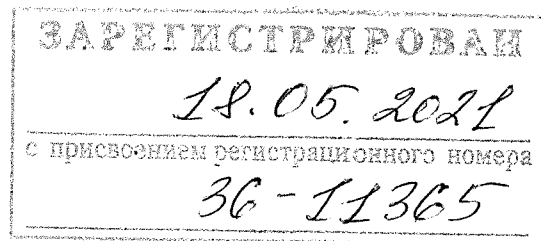 ЗАРЕГИСТРИРОВАН
18.05.2021
с присвоением регистрационного номера
36-11365